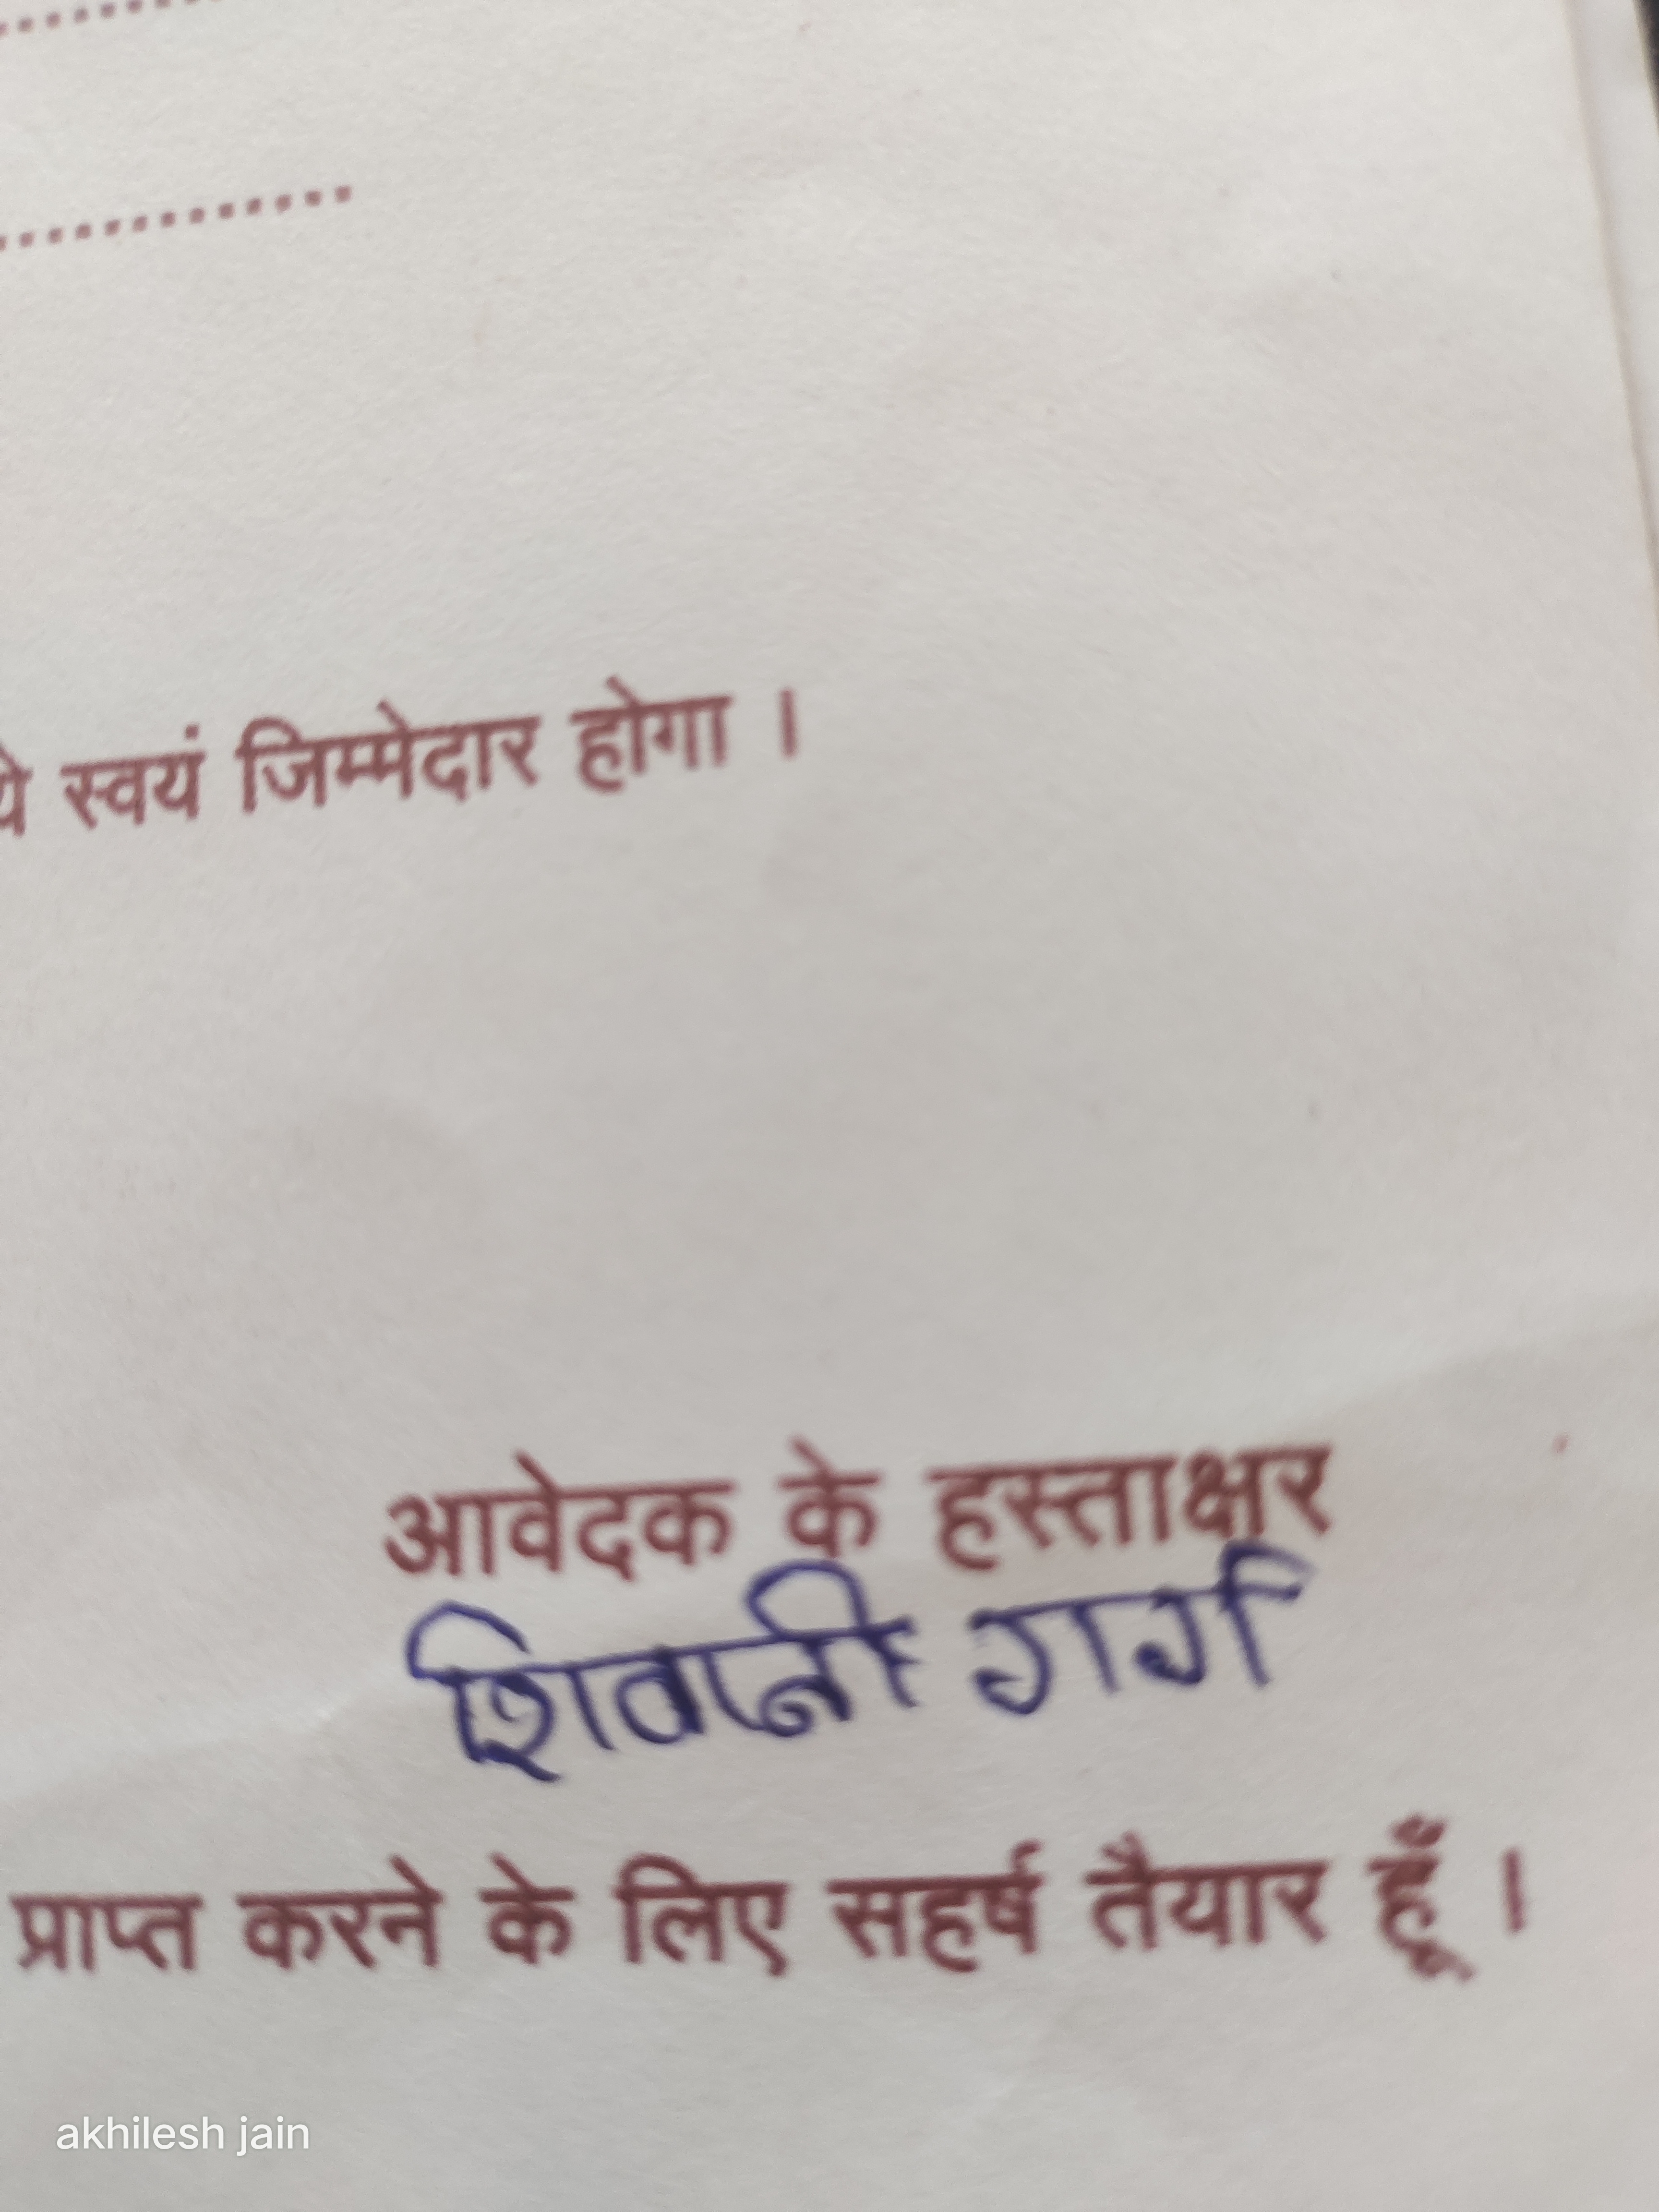 स्वयं जिम्मेदार होगा ।
आवेदक के हस्ताक्षर
शिवानी गर्ग
प्राप्त करने के लिए सहर्ष तैयार हूँ ।
akhilesh jain